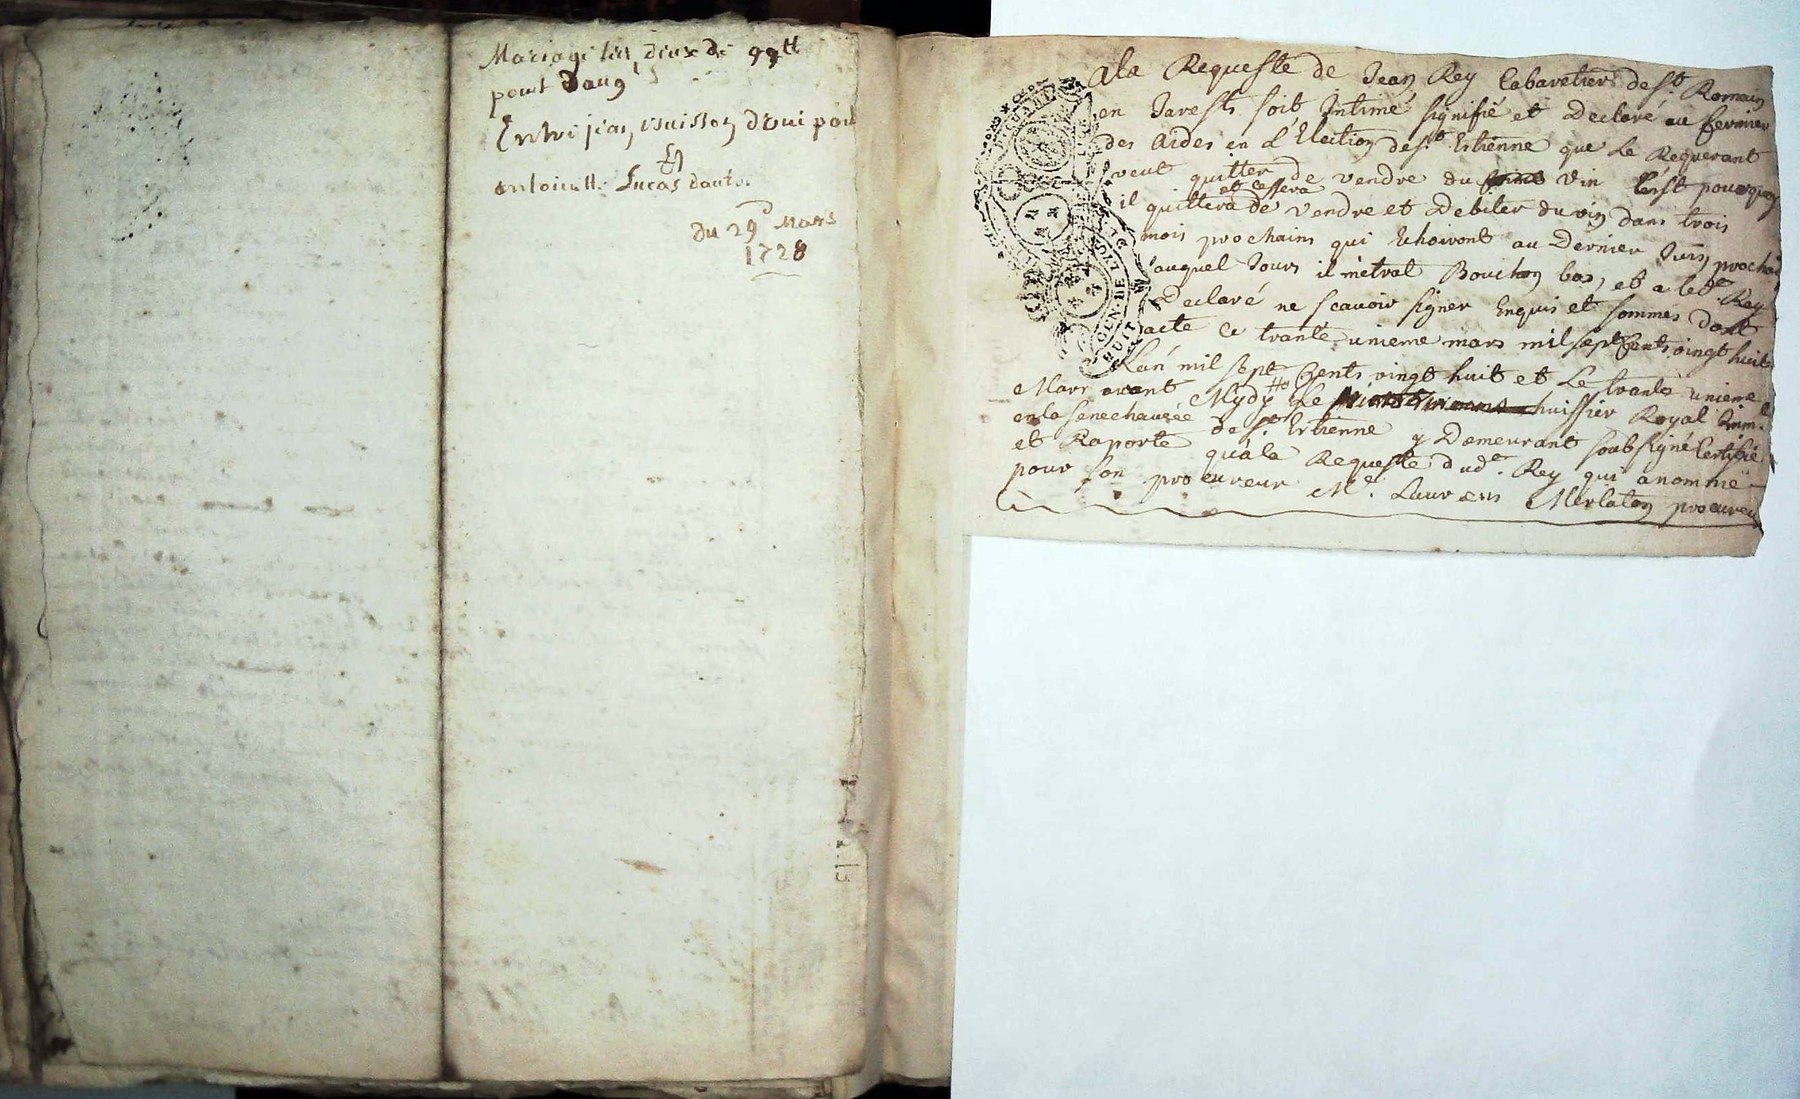 Mariage les dieux de 99tt
pour d'aug
Entre jean vuisson d'une part
Et
antoinette Lucas dautre
du 29e Mars
1728
Ala Requeste de Jean Rey Cabaretier de St Romain
en Jarest soit Intimé signifié et Declaré au fermier
des Aides en L'Election de St Estienne que Le Requerant
veut quitter de vendre du vin C'est pourquoy
et cessera
il quittera de vendre et Debiter du vin dans trois
mois prochains qui Echoiront au Dernier Juin prochain
auquel Jours il metrat Bouchon bas, et a led. Rey
Declaré ne scavoir signer Enquis et sommes dont
acte Ce trante unieme mars mil sept Cents vingt huit
L'an mil sept Cents vingt huit et Le trante unieme
Mars avant Mydy Je huissier Royal Imm.le
en la senechaucée de St Estienne y Demeurant soubsigné Certifié
et Raporte qu'a la Requeste dud. Rey qui a nommé
pour son procureur Me. Laurens Merlaton procureur
GEN. DE LION
HUIT